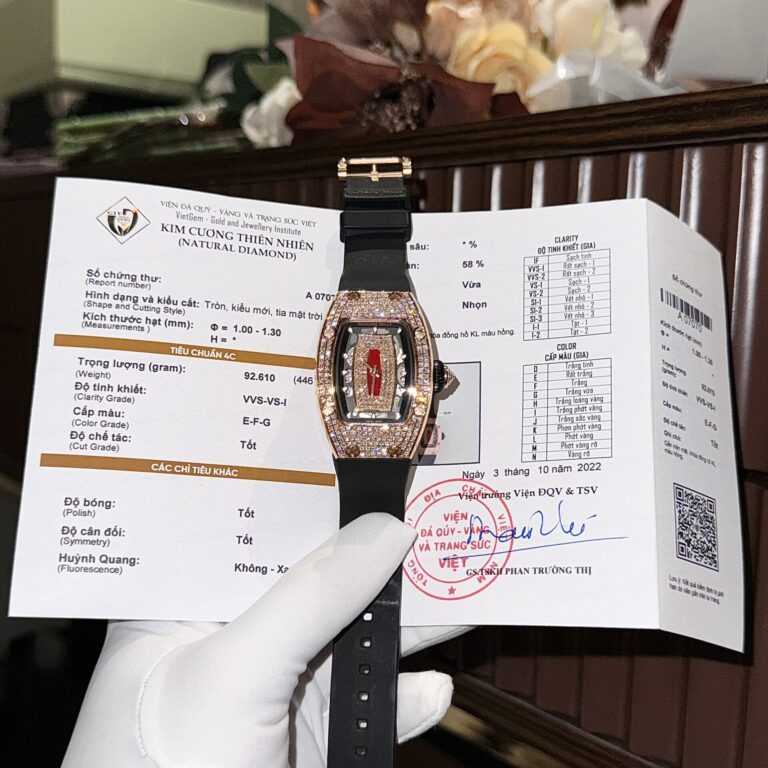 VIỆN ĐÁ QUÝ - VÀNG VÀ TRANG SỨC VIỆT
VietGem - Gold and Jewellery Institute
KIM CƯƠNG THIÊN NHIÊN
(NATURAL DIAMOND)
Số chứng thư:
(Report number)
A 0707
Hình dạng và kiểu cắt: Tròn, kiểu mới, tia mặt trời
(Shape and Cutting Style)
Kích thước hạt (mm): Φ = 1.00 - 1.30
(Measurements) H = *
TIÊU CHUẨN 4C
Trọng lượng (gram): 92.610 (446
(Weight)
Độ tinh khiết: VVS-VS-I
(Clarity Grade)
Cấp màu: E-F-G
(Color Grade)
Độ chế tác: Tốt
(Cut Grade)
CÁC CHỈ TIÊU KHÁC
Độ bóng: Tốt
(Polish)
Độ cân đối: Tốt
(Symmetry)
Huỳnh Quang: Không - Xa
(Fluorescence)
sâu: * %
àn: 58 %
Vừa
Nhọn
đồng hồ KL màu hồng.
CLARITY
ĐỘ TINH KHIẾT (GIA)
IF Sạch tinh
VVS-1 Rất sạch - 1
VVS-2 Rất sạch - 2
VS-1 Sạch - 1
VS-2 Sạch - 2
SI-1 Vết nhỏ - 1
SI-2 Vết nhỏ - 2
SI-3 Vết nhỏ - 3
I-1 Tạt - 1
I-2 Tạt - 2
COLOR
CẤP MÀU (GIA)
D Trắng tinh
E Rất trắng
F Trắng
G Trắng vừa
H Trắng loáng vàng
I Trắng phớt vàng
J Trắng sắc vàng
K Phơn phớt vàng
L Phớt vàng
M Phớt vàng rõ
N Vàng rõ
Ngày 3 tháng 10 năm 2022
Viện trưởng Viện ĐQV & TSV
VIỆN
ĐÁ QUÝ - VÀNG
VÀ TRANG SỨC
VIỆT
GS.TSKH PHAN TRƯỜNG THỊ
Số chứng thư
A 07070
Kích thước hạt (mm)
1.00 - 1.30
92.610
Độ tinh khiết
VVS-VS-I
Cấp màu
E-F-G
Độ chế tác
Tốt
Ghi chú: